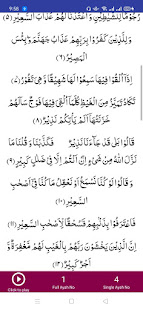 9:56
رُجُومًا لِّلشَّيٰطِيْنِ وَ اَعْتَدْنَا لَهُمْ عَذَابَ السَّعِيْرِ (٥)
وَ لِلَّذِيْنَ كَفَرُوْا بِرَبِّهِمْ عَذَابُ جَهَنَّمَ وَ بِئْسَ
الْمَصِيْرُ (٦)
اِذَاۤ اُلْقُوْا فِيْهَا سَمِعُوْا لَهَا شَهِيْقًا وَّ هِیَ تَفُوْرُ (٧)
تَكَادُ تَمَیَّزُ مِنَ الْغَیْظِ كُلَّمَاۤ اُلْقِیَ فِیْهَا فَوْجٌ سَاَلَهُمْ
خَزَنَتُهَاۤ اَلَمْ یَاْتِكُمْ نَذِیْرٌ (٨)
قَالُوْا بَلٰى قَدْ جَآءَنَا نَذِیْرٌ فَكَذَّبْنَا وَ قُلْنَا مَا
نَزَّلَ اللّٰهُ مِنْ شَیْءٍ اِنْ اَنْتُمْ اِلَّا فِیْ ضَلٰلٍ كَبِیْرٍ (٩)
وَ قَالُوْا لَوْ كُنَّا نَسْمَعُ اَوْ نَعْقِلُ مَا كُنَّا فِیْۤ اَصْحٰبِ
السَّعِیْرِ (١٠)
فَاعْتَرَفُوْا بِذَنْۢبِهِمْ فَسُحْقًا لِّاَصْحٰبِ السَّعِیْرِ (١١)
اِنَّ الَّذِیْنَ یَخْشَوْنَ رَبَّهُمْ بِالْغَیْبِ لَهُمْ مَّغْفِرَةٌ وَّ
اَجْرٌ كَبِیْرٌ (١٢)
1 4
Click to play Full Ayah No Single Ayah No